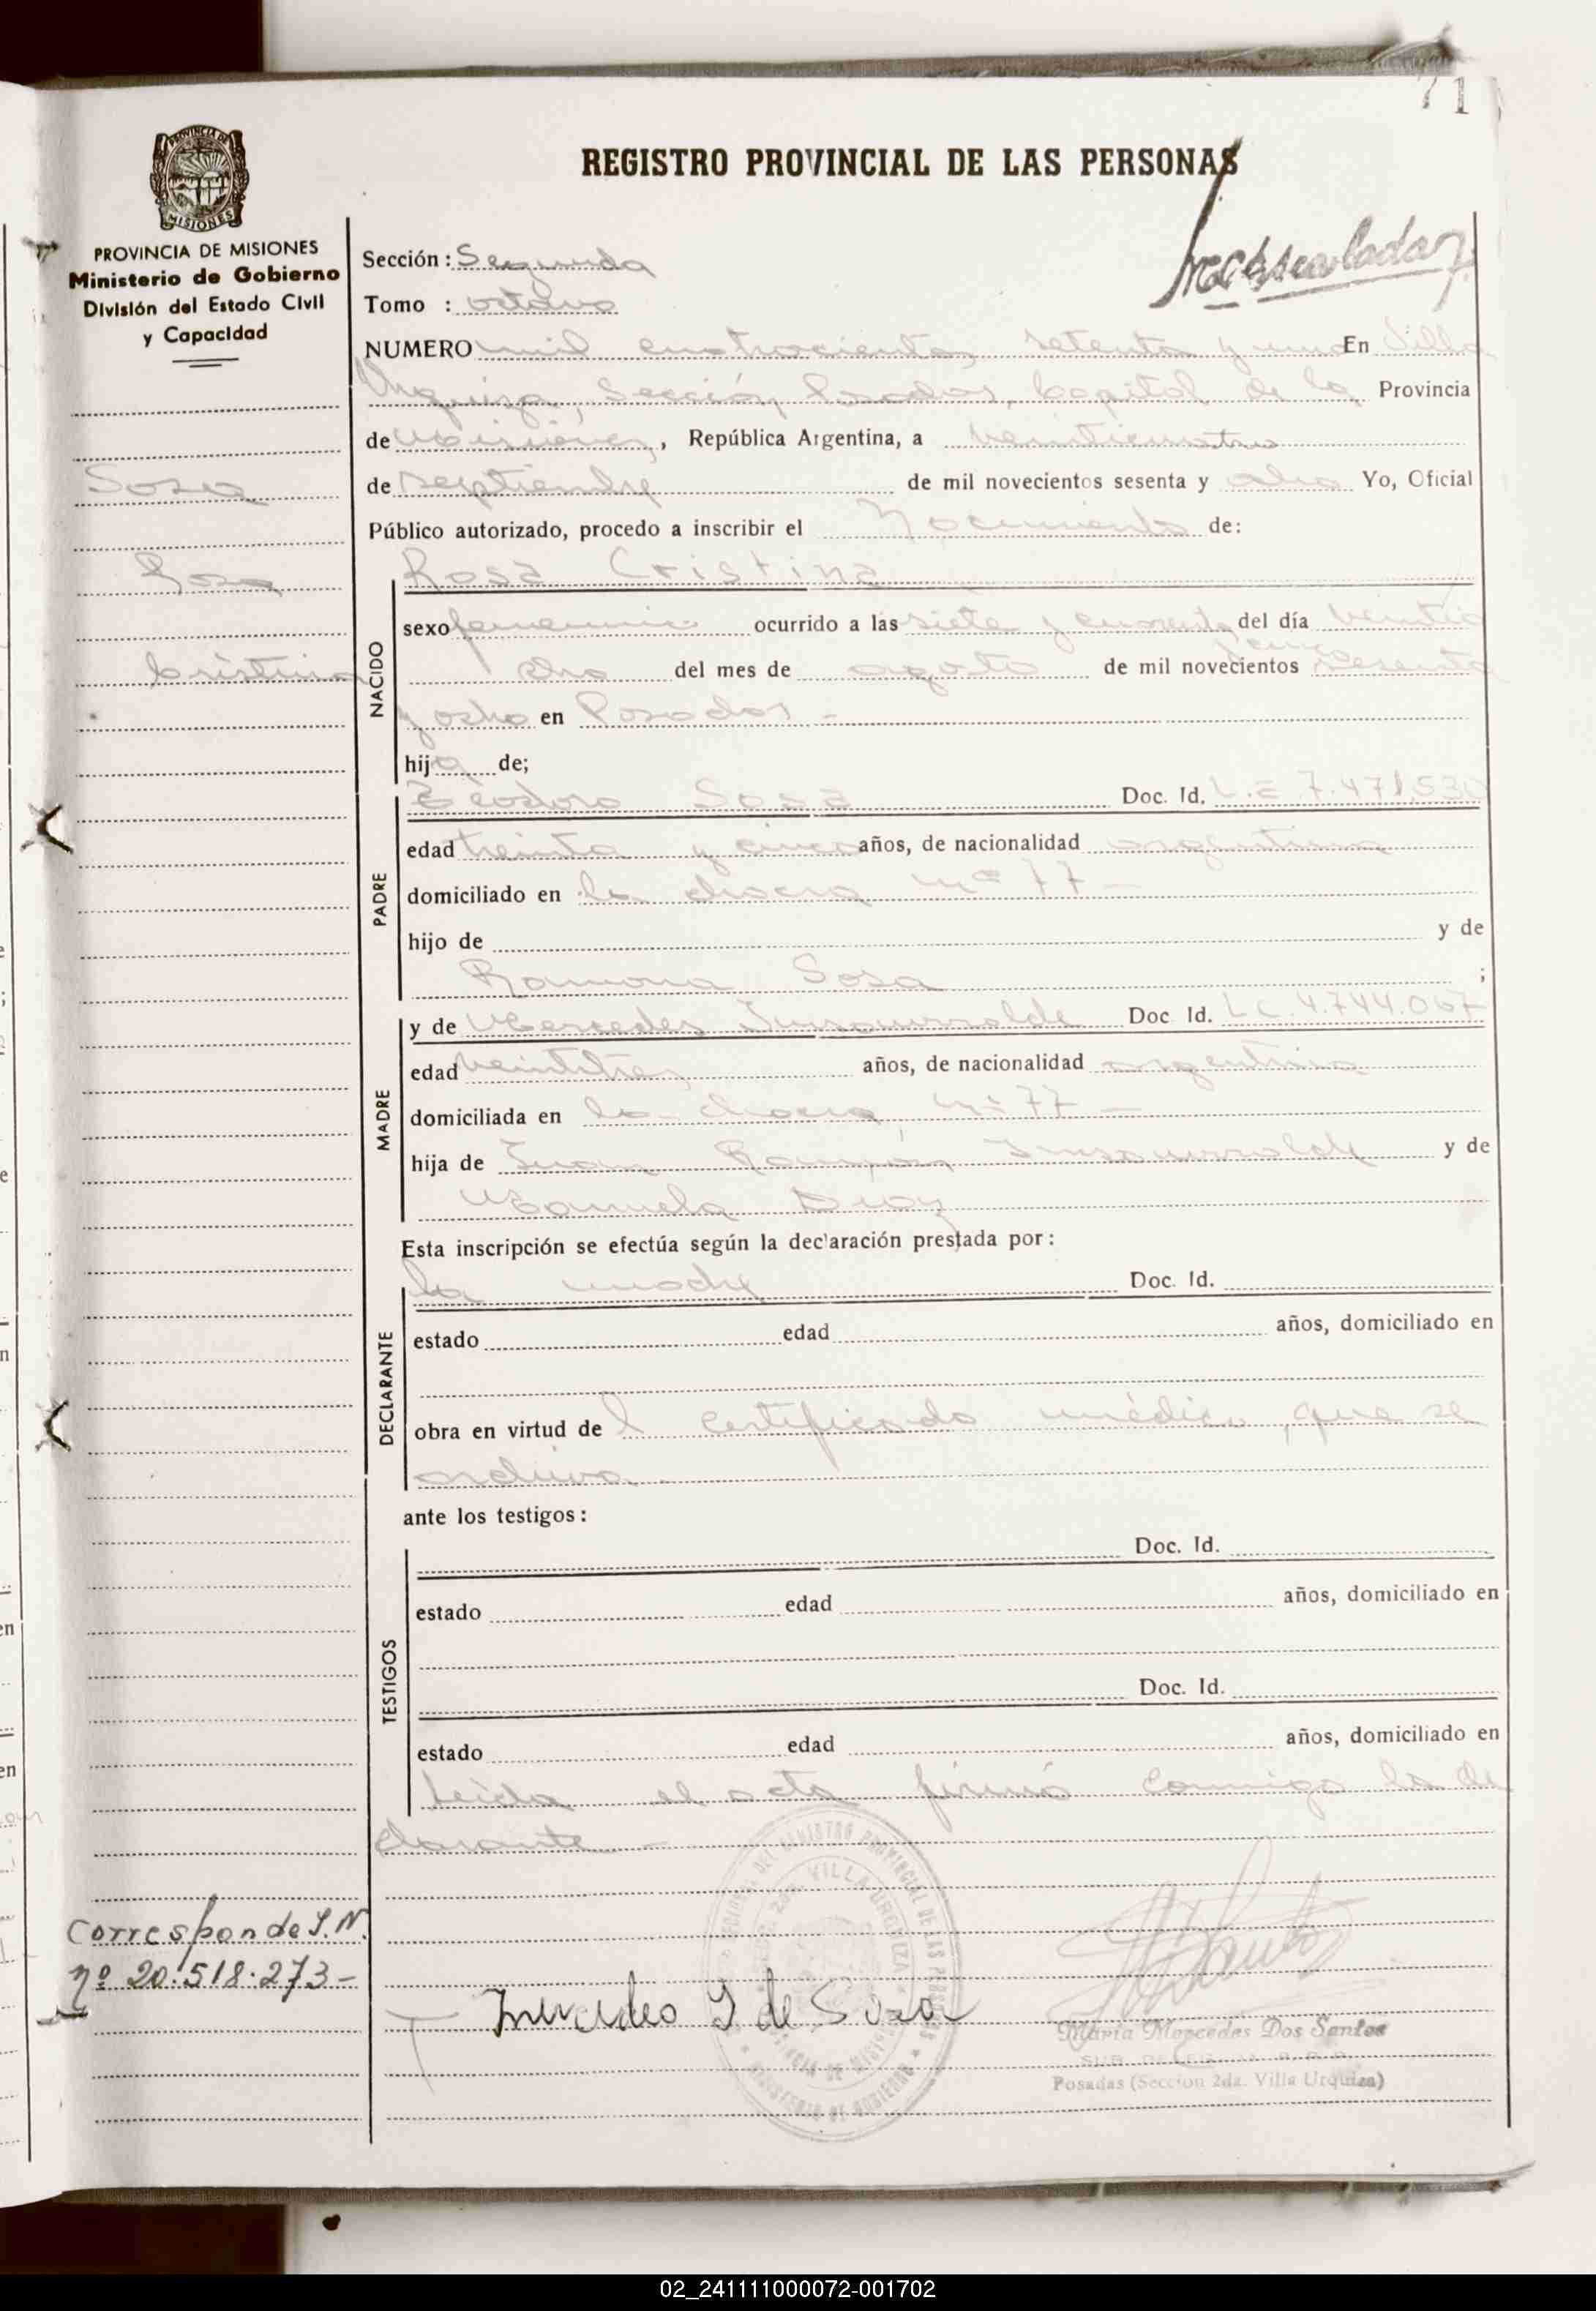 71
REGISTRO PROVINCIAL DE LAS PERSONAS
PROVINCIA DE MISIONES
Ministerio de Gobierno
División del Estado Civil
y Capacidad
Sección: Segunda
Tomo : octavo
NUMERO mil cuatrocientos setenta y uno En Villa
Urquiza, Sección Posadas, Capital de la Provincia
de Misiones, República Argentina, a veinticuatro
de septiembre de mil novecientos sesenta y ocho Yo, Oficial
Público autorizado, procedo a inscribir el Nacimiento de:
Sosa
Rosa
Cristina
NACIDO
Rosa Cristina
sexo femenino ocurrido a las siete y cuarenta y cinco del día veintio
cho del mes de agosto de mil novecientos sesenta
y ocho en Posadas -
hija de;
PADRE
Teodoro Sosa Doc. Id. L.E 7.471.530
edad treinta y cinco años, de nacionalidad argentina
domiciliado en la chacra nº 77 -
hijo de y de
Ramona Sosa ;
MADRE
y de Mercedes Insaurralde Doc Id. L C. 4.744.067
edad veintitres años, de nacionalidad argentina
domiciliada en la chacra nº 77 -
hija de Juan Ramón Insaurralde y de
Manuela Diaz
Esta inscripción se efectúa según la declaración prestada por:
DECLARANTE
la madre Doc. Id.
estado edad años, domiciliado en
obra en virtud del certificado médico que se
archiva -
ante los testigos:
TESTIGOS
Doc. Id.
estado edad años, domiciliado en
Doc. Id.
estado edad años, domiciliado en
Leida el acta firmó conmigo la de
clarante -
Corresponde I.N.
nº 20.518.273-
Mercedes I de Sosa
Maria Mercedes Dos Santos
Posadas (Seccion 2da. Villa Urquiza)
02_241111000072-001702